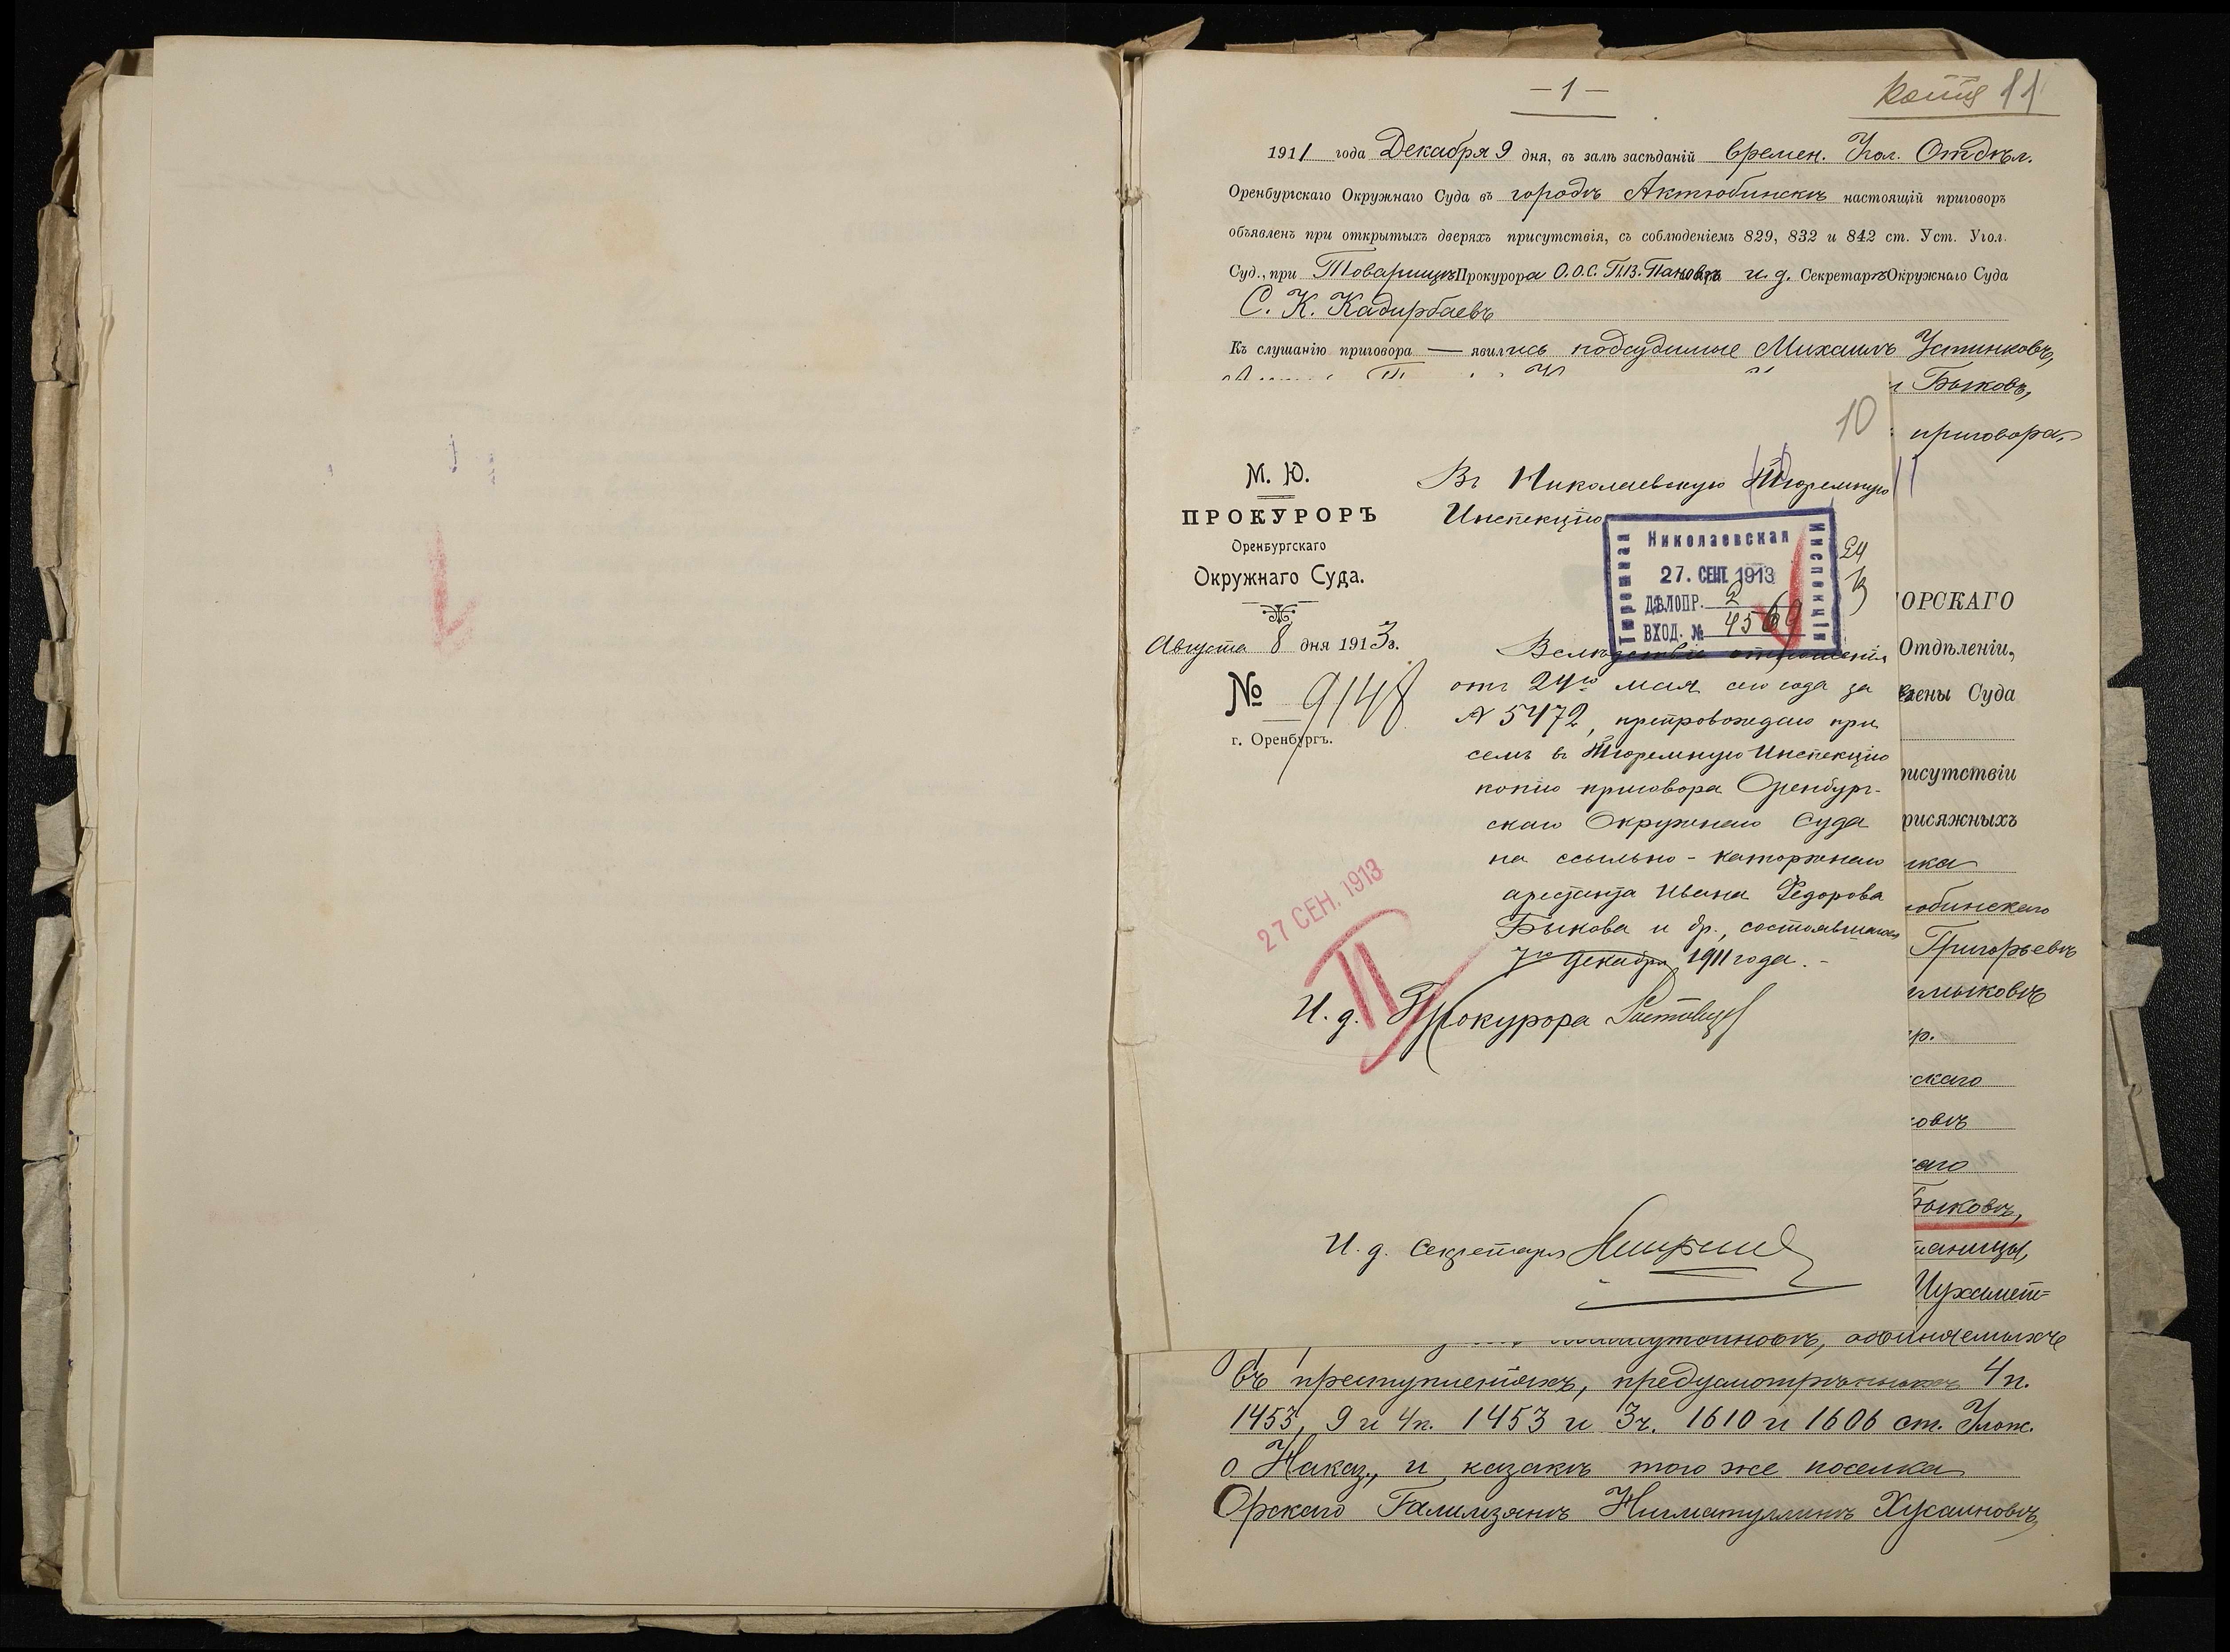 — 1 —
Копія 11
1911 года Декабря 9 дня, въ залѣ засѣданій времен. Угол. Отдѣл.
Оренбургскаго Окружнаго Суда въ городѣ Актюбинскѣ настоящій приговоръ
объявленъ при открытыхъ дверяхъ присутствія, съ соблюденіемъ 829, 832 и 842 ст. Уст. Угол.
Суд., при Товарищѣ Прокурора О.О.С. П.В. Пановѣ и. д. Секретарѣ Окружнаго Суда
С. К. Кадирбаевѣ
Къ слушанію приговора — явились подсудимые Михаилъ Устинковъ,
Быковъ,
приговора.
10
М. Ю.
ПРОКУРОРЪ
Оренбургскаго
Окружнаго Суда.
Августа 8 дня 1913 г.
№ 9148
г. Оренбургъ.
Въ Николаевскую Тюремную
Инспекцію
Николаевская
Тюремная
Инспекція
27. СЕНТ. 1913
ДѢЛОПР. 2
ВХОД. № 4569
Вслѣдствіе отношенія
отъ 24го мая сего года за
№ 5472, препровождаю при
семъ въ Тюремную Инспекцію
копію приговора Оренбург-
скаго Окружнаго Суда
на ссыльно-каторжнаго
арестанта Ивана Федорова
Быкова и др., состоявшагося
7го декабря 1911 года. -
27 СЕН. 1913
И. д. Прокурора
И. д. Секретаря
ОРСКАГО
Отдѣленіи,
лены Суда
рисутствіи
рисяжныхъ
лка
юбинскаго
Григорьевъ
мыковъ
ур.
скаго
ковъ
каго
Быковъ,
таницы,
Мухамет=
обвиняемыхъ
въ преступленіяхъ, предусмотрѣнныхъ 4 п.
1453, 9 и 4 п. 1453 и 3 ч. 1610 и 1606 ст. Улож.
о Наказ., и казакъ того же поселка
Орскаго Галимзянъ Нигматуллинъ Хусаиновъ,